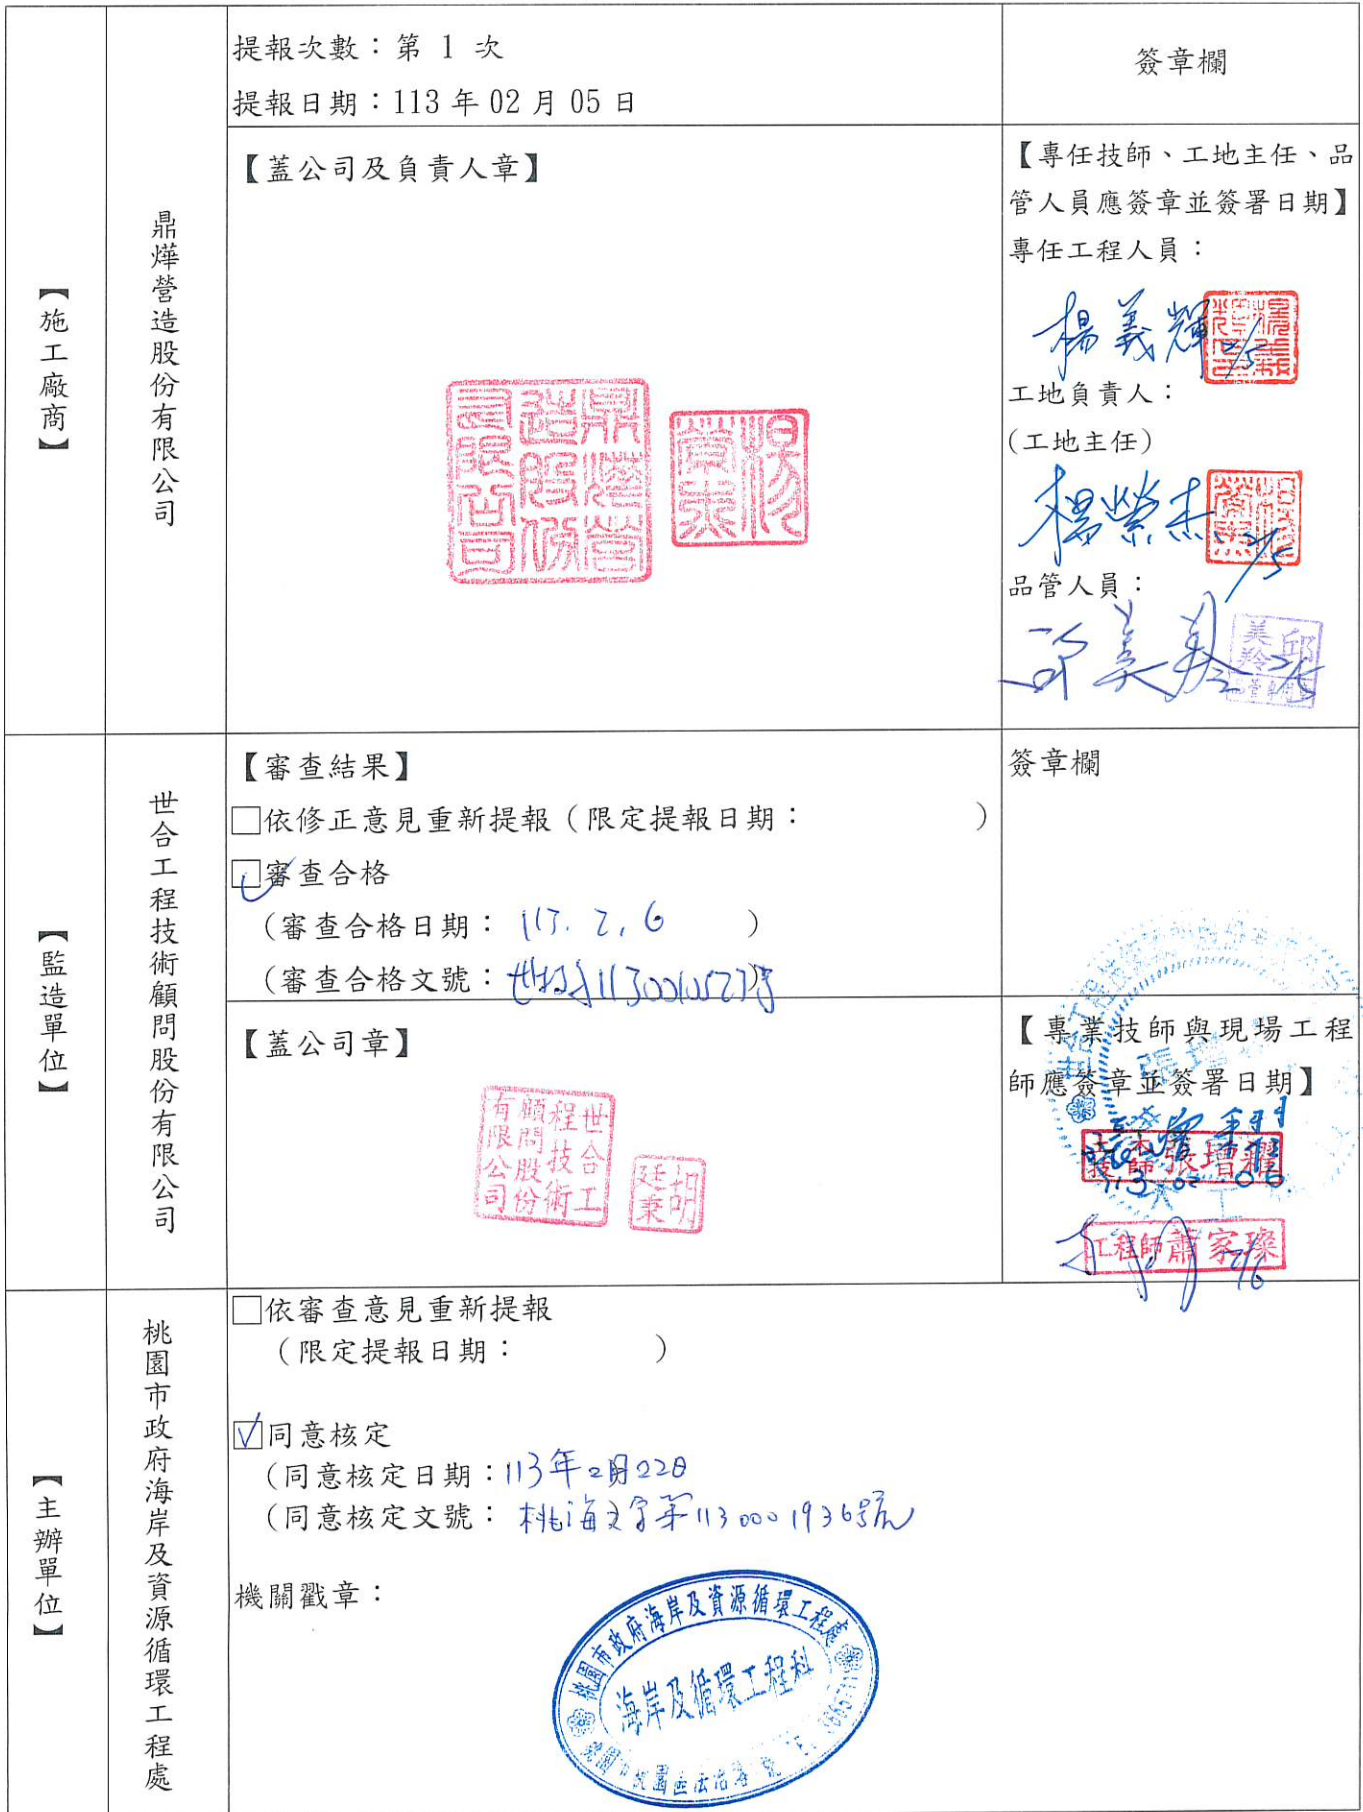 提報次數：第 1 次
提報日期：113 年 02 月 05 日
簽章欄
【施工廠商】
鼎燁營造股份有限公司
【蓋公司及負責人章】
鼎燁營造股份有限公司
楊榮杰
【專任技師、工地主任、品
管人員應簽章並簽署日期】
專任工程人員：
楊義輝 2/5
工地負責人：
(工地主任)
楊榮杰 2/5
品管人員：
邱美羚 2/5
邱美羚
【監造單位】
世合工程技術顧問股份有限公司
【審查結果】
□依修正意見重新提報（限定提報日期：　　　）
☑審查合格
（審查合格日期： 113. 2. 6 ）
（審查合格文號：
簽章欄
【蓋公司章】
世合工程技術顧問股份有限公司
胡明廷秉
【專業技師與現場工程
師應簽章並簽署日期】
土木技師張增耀
113.02.06
工程師蕭家璨
2/6
【主辦單位】
桃園市政府海岸及資源循環工程處
□依審查意見重新提報
（限定提報日期：　　　）
☑同意核定
（同意核定日期：113年2月22日
（同意核定文號： 桃海文字第1130001936號
機關戳章：
桃園市政府海岸及資源循環工程處
海岸及循環工程科